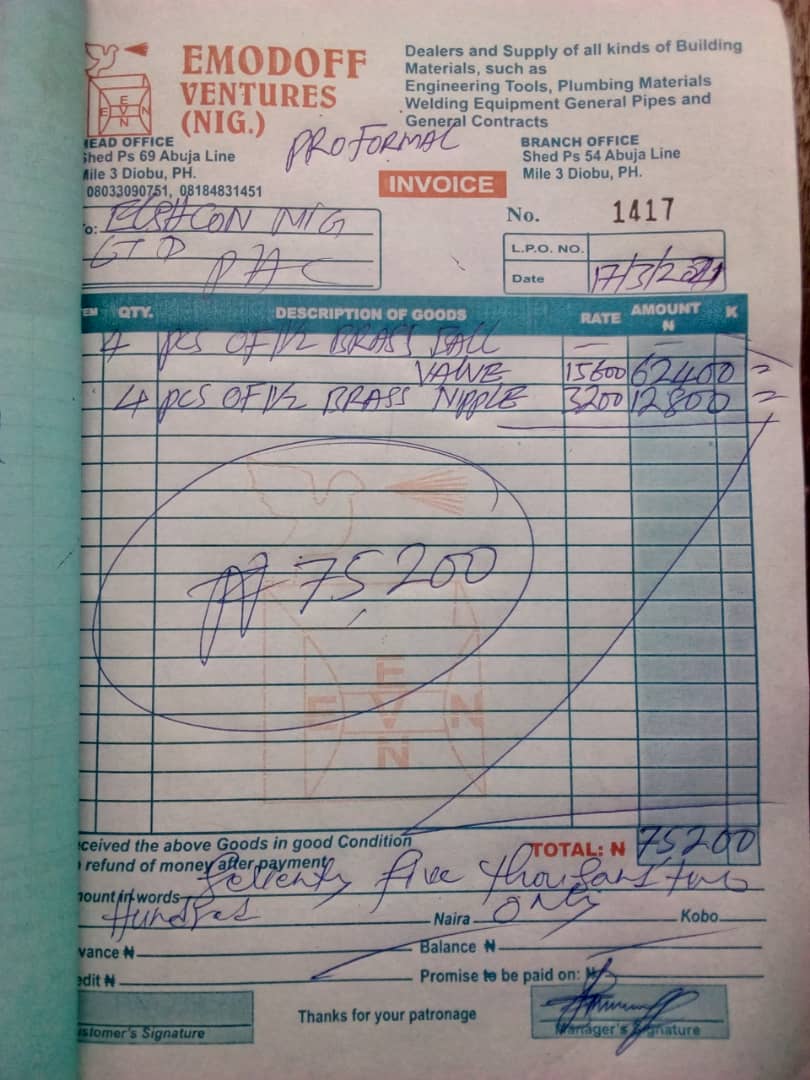 EMODOFF
VENTURES
(NIG.)
Dealers and Supply of all kinds of Building
Materials, such as
Engineering Tools, Plumbing Materials
Welding Equipment General Pipes and
General Contracts
HEAD OFFICE
Shed Ps 69 Abuja Line
Mile 3 Diobu, PH.
08033090751, 08184831451
PROFORMAL
INVOICE
BRANCH OFFICE
Shed Ps 54 Abuja Line
Mile 3 Diobu, PH.
No. 1417
To:
NIG
LTD
PHC
L.P.O. NO.
Date 17/3/2021
EM QTY. DESCRIPTION OF GOODS RATE AMOUNT K
N
4 pcs OF 1½ BRASS BALL
VALVE 15600 62400 =
4 pcs OF 1½ BRASS NIPPLE 3200 12800 =
₦75200
E
E V N
N
ceived the above Goods in good Condition
refund of money after payment
TOTAL: N 75200
mount in words Seventy five thousand two
Hundred Naira Only Kobo
vance ₦ Balance ₦
edit ₦ Promise to be paid on: ₦
stomer's Signature
Thanks for your patronage
Manager's Signature